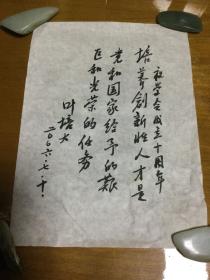 祝学会成立十周年
培养创新性人才是
党和国家给予的艰
巨和光荣的任务
叶培大
二〇〇六.七.十.